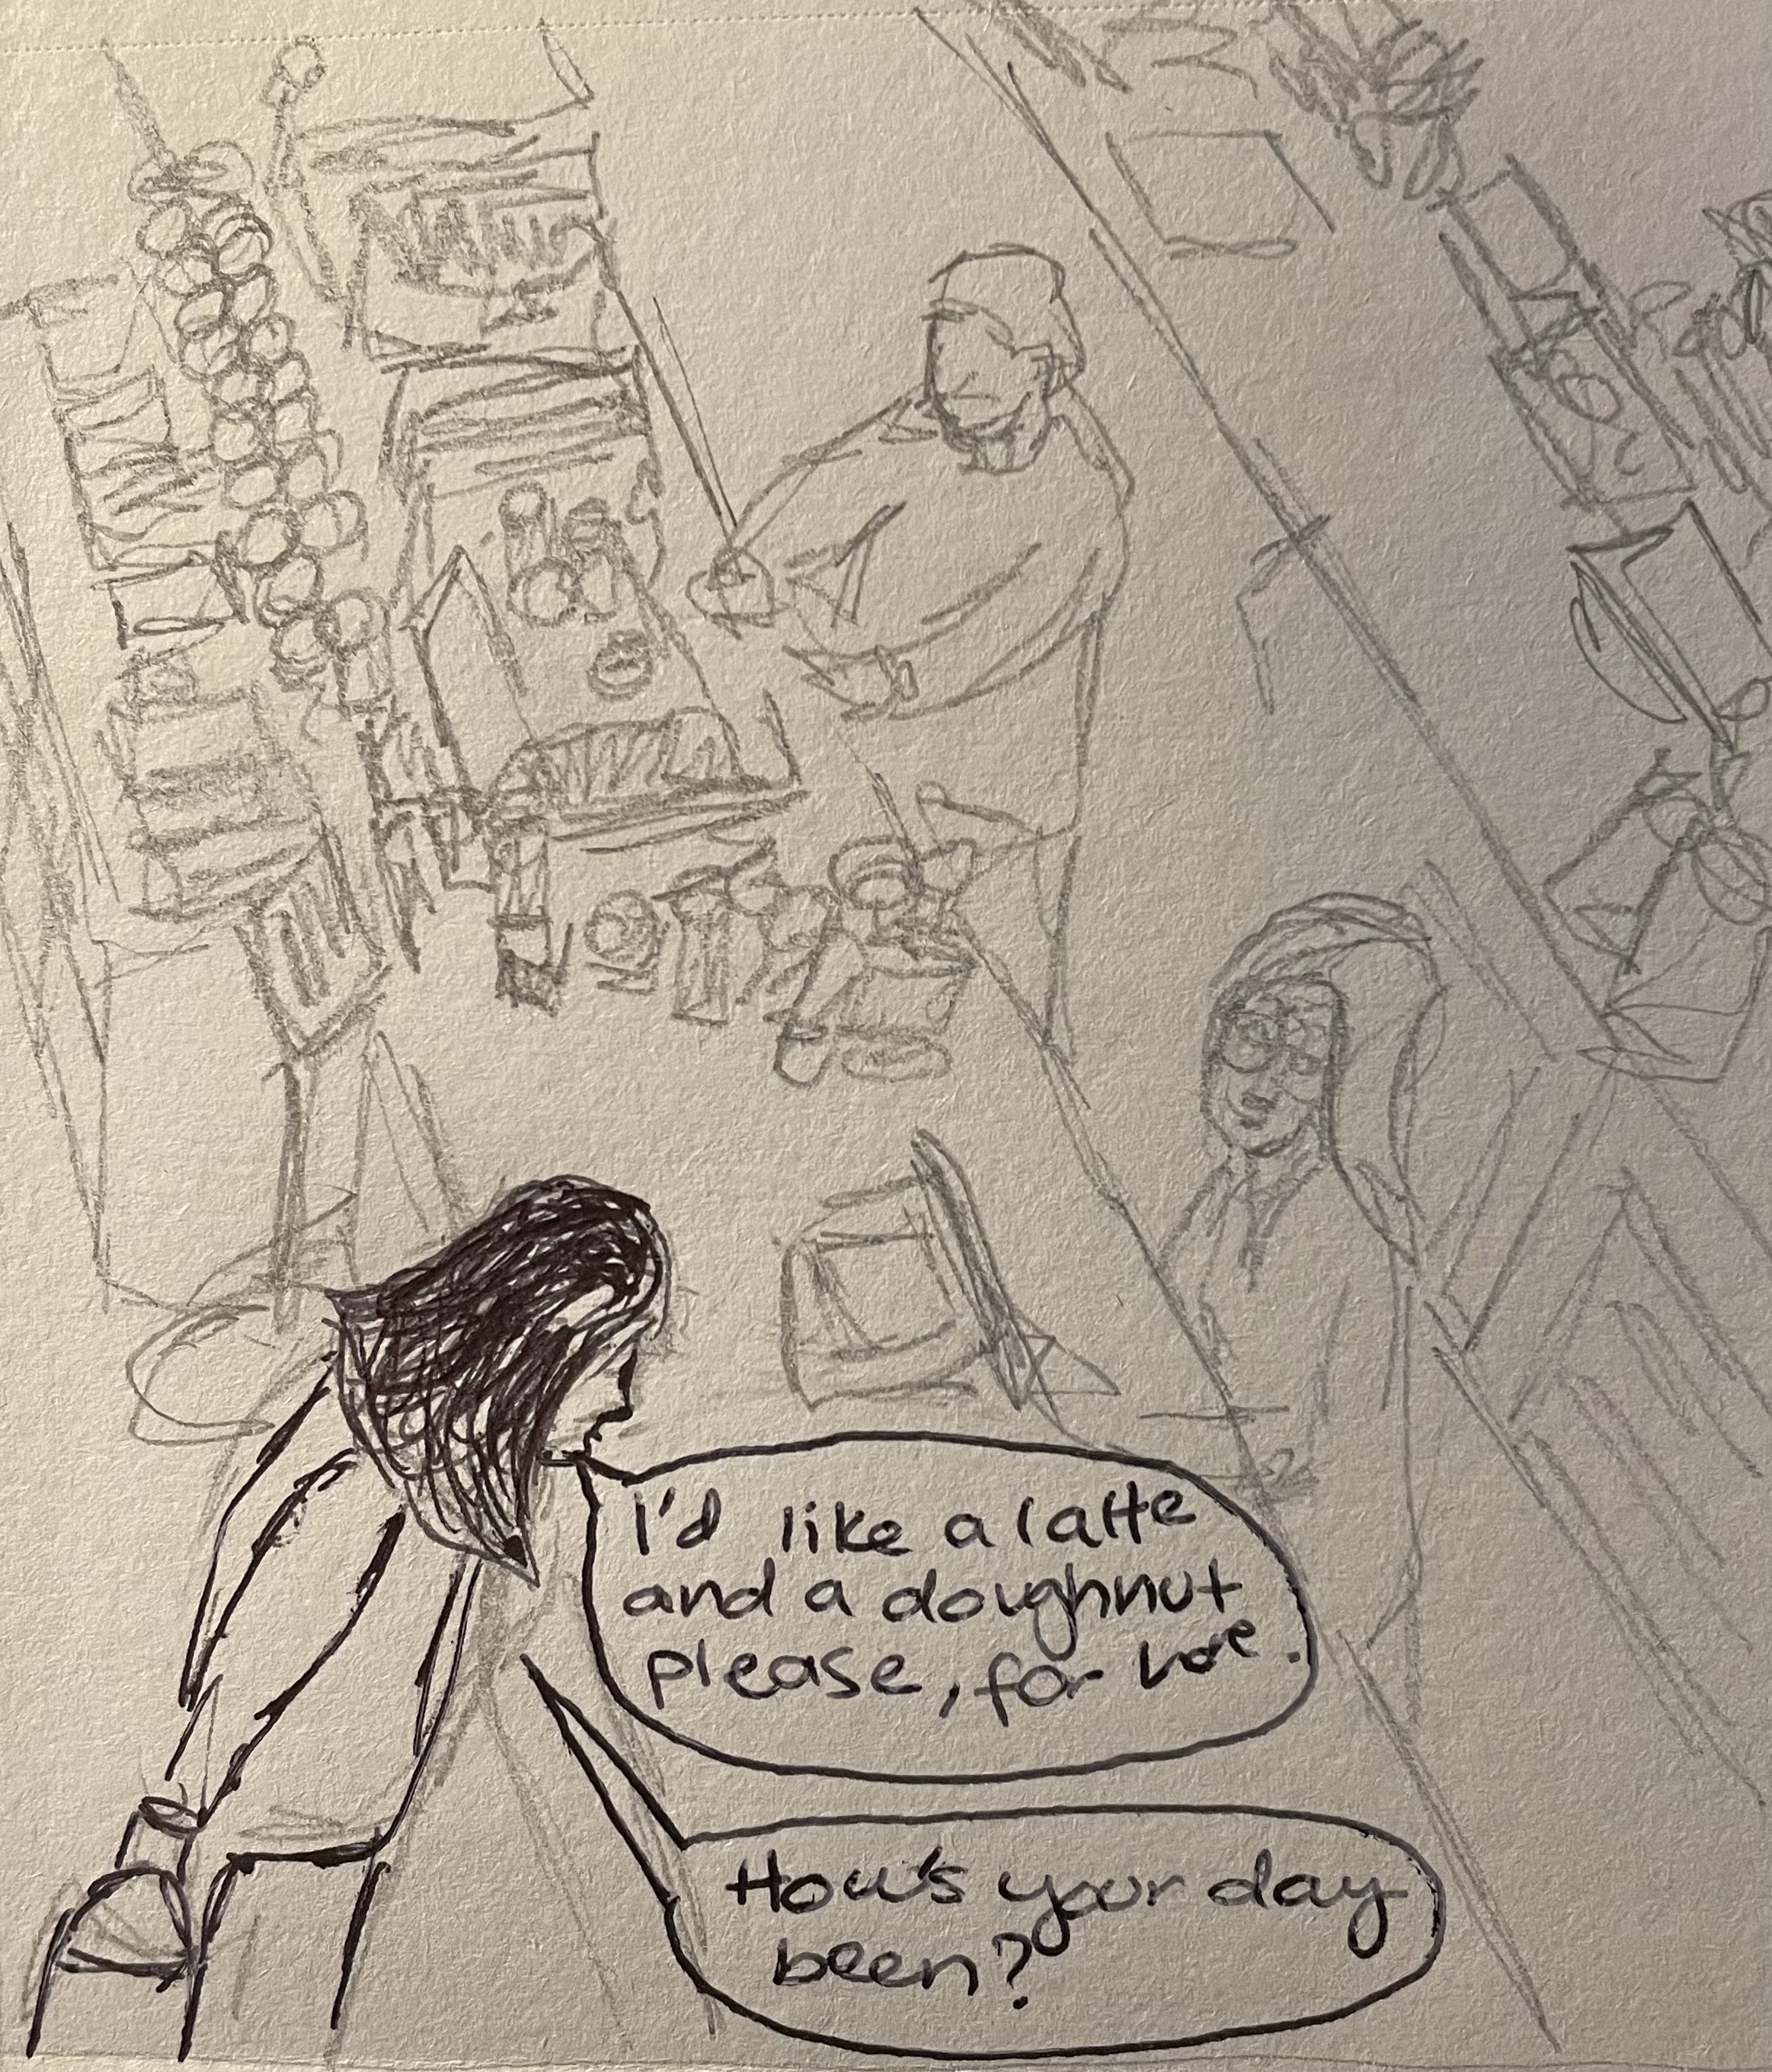 I'd like a latte
and a doughnut
please, for here.
How's your day
been?